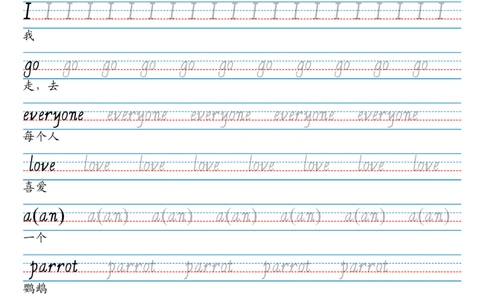 I I I I I I I I I I I I I I I I I I I I I
我
go go go go go go go go go go go
走，去
everyone everyone everyone everyone everyone
每个人
love love love love love love love love
喜爱
a(an) a(an) a(an) a(an) a(an) a(an) a(an)
一个
parrot parrot parrot parrot parrot
鹦鹉